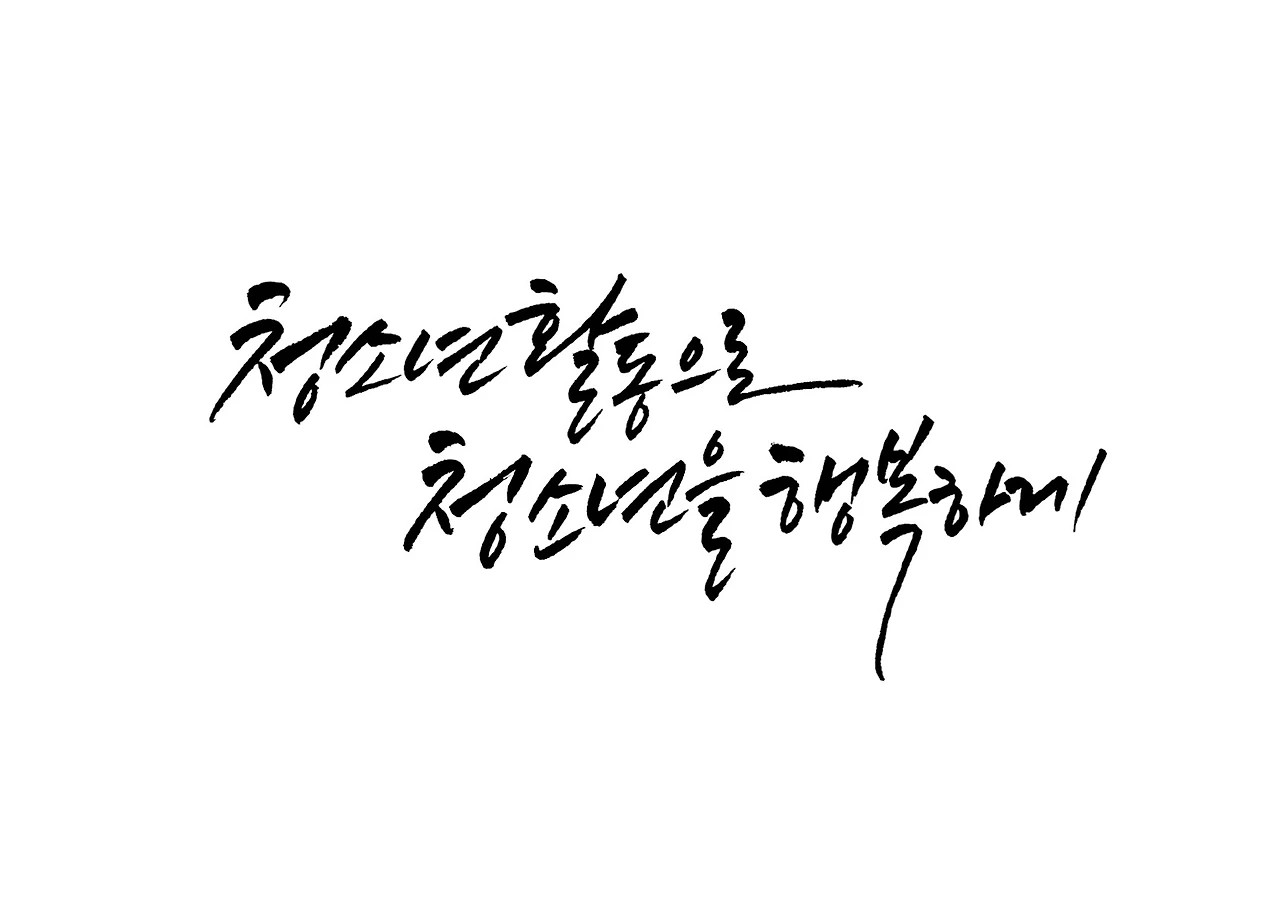 청소년활동으로
청소년을 행복하게